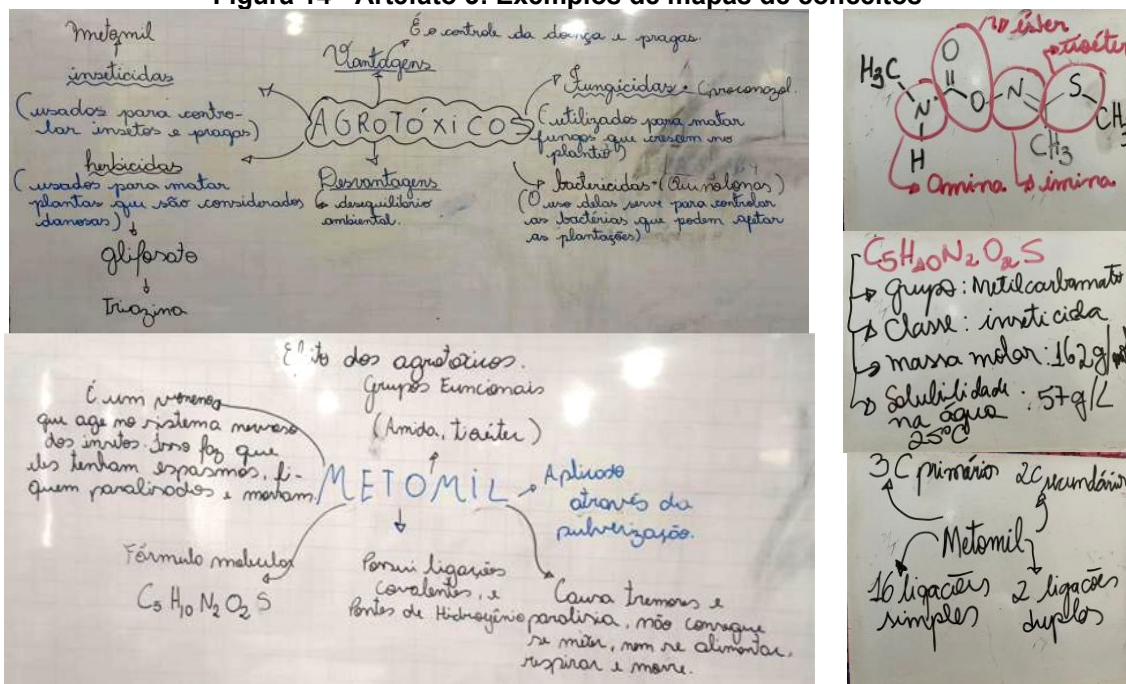 Figura 14 - Artefato 3: Exemplos de mapas de conceitos
metomil
inseticidas
(usados para contro-
lar insetos e pragas)
herbicidas
(usados para matar
plantas que são considerados
danosas)
glifosato
Triazina
Vantagens
É o controle da doença e pragas.
AGROTÓXICOS
Desvantagens
desequilíbrio
ambiental.
Fungicidas • Ciproconazol.
(utilizados para matar
fungos que crescem no
plantio)
bactericidas • (Quinolonas)
(O uso delas serve para controlar
as bactérias que podem afetar
as plantações)
éster
tioéter
H₃C
O
N
O
N
S
H
CH₃
CH₃
Amina
imina
C₅H₁₀N₂O₂S
grupo: Metilcarbamato
Classe: inseticida
massa molar: 162g/mol
Solubilidade
na água : 57g/L
25°C
3C primários
2C secundários
Metomil
16 ligações
simples
2 ligações
duplas
Efeito dos agrotóxicos.
Grupos Funcionais
(Amida, tioéter)
É um veneno
que age no sistema nervoso
dos insetos. Isso faz que
eles tenham espasmos, fi-
quem paralisados e morram.
METOMIL
Aplicado
através da
pulverização.
Fórmula molecular
C₅ H₁₀ N₂ O₂ S
Possui ligações
covalentes, e
Pontes de Hidrogênio
Causa tremores e
paralisia, não consegue
se meter, nem se alimentar,
respirar e morre.